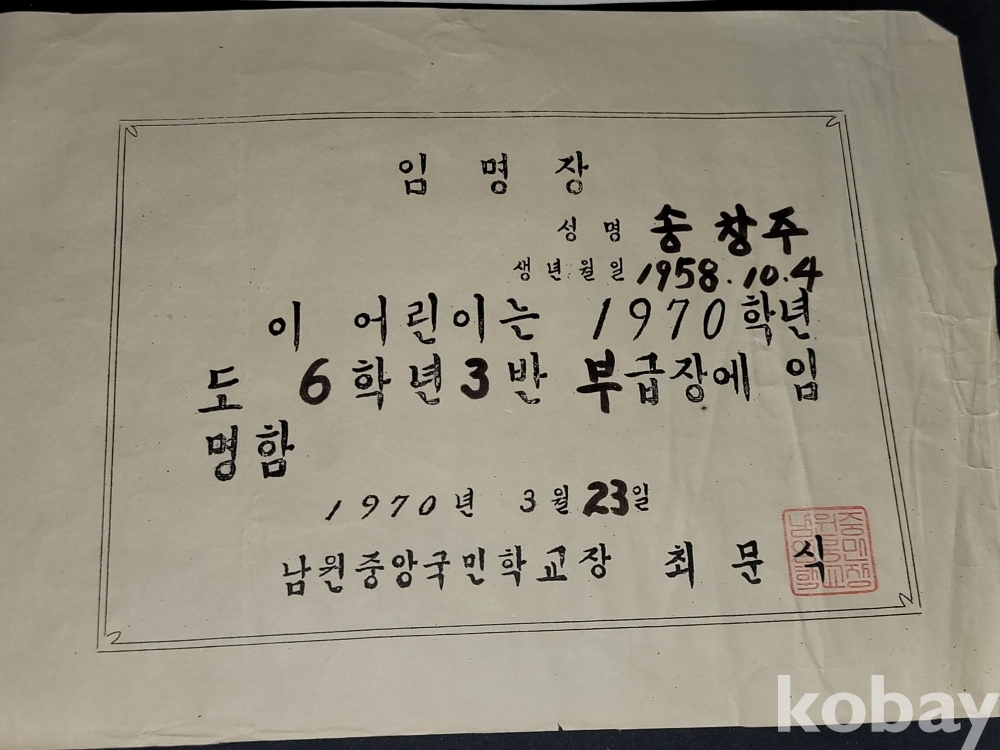 임 명 장
성 명 송 창 주
생년월일 1958.10.4
이 어린이는 1970학년
도 6학년 3반 부급장에 임
명함
1970년 3월 23일
남원중앙국민학교장 최 문 식
kobay